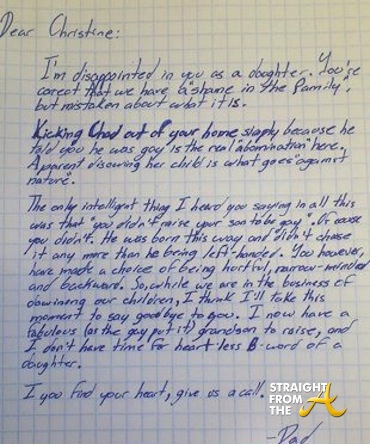 Dear Christine:
I'm disappointed in you as a daughter. You're
corect that we have a "shame in the family",
but mistaken about what it is.
Kicking Chad out of your home simply because he
told you he was gay is the real "abomination" here.
A parent disowning her child is what goes "against
nature".
The only intelligent thing I heard you saying in all this
was that "you didn't raise your son to be gay". Of couse
you didn't. He was born this way and didn't choose
it any more than he being left-handed. You however,
have made a choice of being hurtful, narrow-minded
and backward. So, while we are in the business of
disowning our children, I think I'll take this
moment to say goodbye to you. I now have a
fabulous (as the gay put it) grandson to raise, and
I don't have time for heart less B-word of a
daughter.
I you find your heart, give us a call.
-Dad
STRAIGHT
FROM
THE A